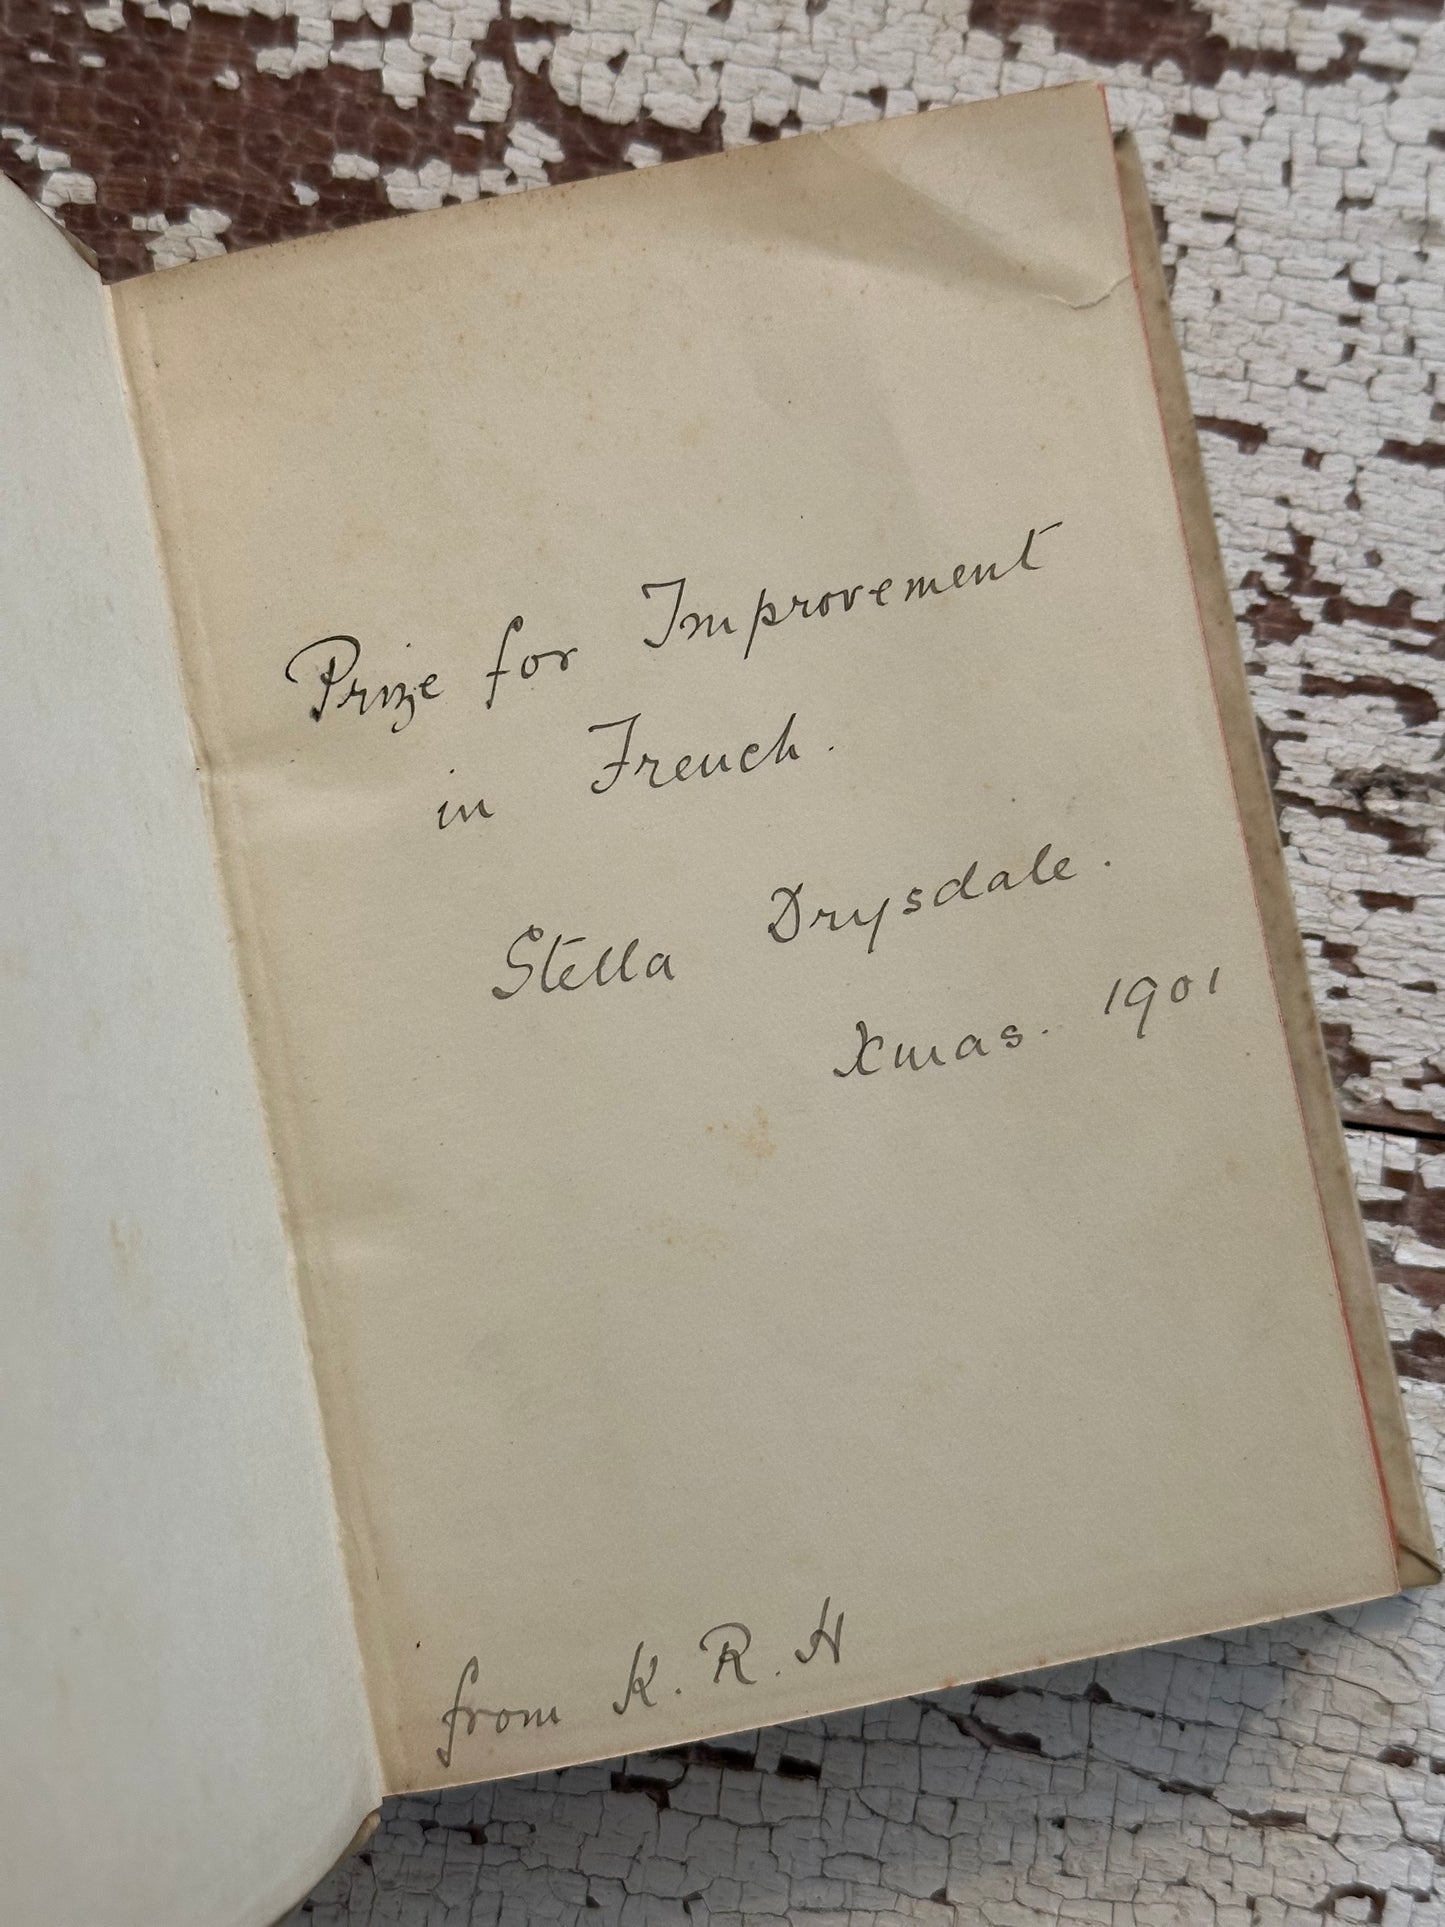 Prize for Improvement
in French.
Stella Drysdale.
Xmas. 1901
from K. R. H